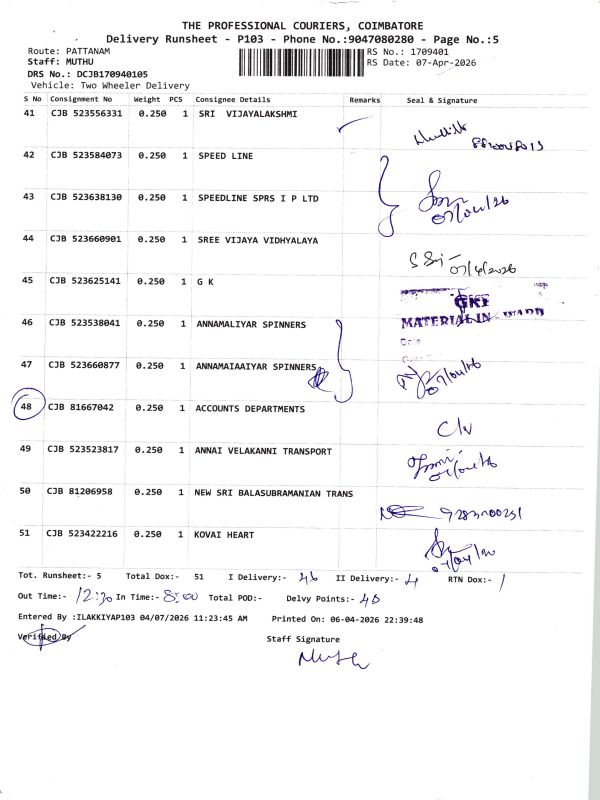 THE PROFESSIONAL COURIERS, COIMBATORE
Delivery Runsheet - P103 - Phone No.:9047080280 - Page No.:5
Route: PATTANAM
RS No.: 1709401
Staff: MUTHU
RS Date: 07-Apr-2026
DRS No.: DCJB170940105
Vehicle: Two Wheeler Delivery
S No Consignment No Weight PCS Consignee Details Remarks Seal & Signature
41 CJB 523556331 0.250 1 SRI VIJAYALAKSHMI
42 CJB 523584073 0.250 1 SPEED LINE
43 CJB 523638130 0.250 1 SPEEDLINE SPRS I P LTD
07/04/26
44 CJB 523660901 0.250 1 SREE VIJAYA VIDHYALAYA
07/4/2026
45 CJB 523625141 0.250 1 G K
GKI
MATERIAL IN
46 CJB 523538041 0.250 1 ANNAMALIYAR SPINNERS
47 CJB 523660877 0.250 1 ANNAMAIAAIYAR SPINNERS
07/04/26
48 CJB 81667042 0.250 1 ACCOUNTS DEPARTMENTS
C/N
49 CJB 523523817 0.250 1 ANNAI VELAKANNI TRANSPORT
50 CJB 81206958 0.250 1 NEW SRI BALASUBRAMANIAN TRANS
51 CJB 523422216 0.250 1 KOVAI HEART
Tot. Runsheet:- 5 Total Dox:- 51 I Delivery:- 46 II Delivery:- 4 RTN Dox:- 1
Out Time:- 12:30 In Time:- 8:00 Total POD:- Delvy Points:- 40
Entered By :ILAKKIYAP103 04/07/2026 11:23:45 AM Printed On: 06-04-2026 22:39:48
Verified By
Staff Signature